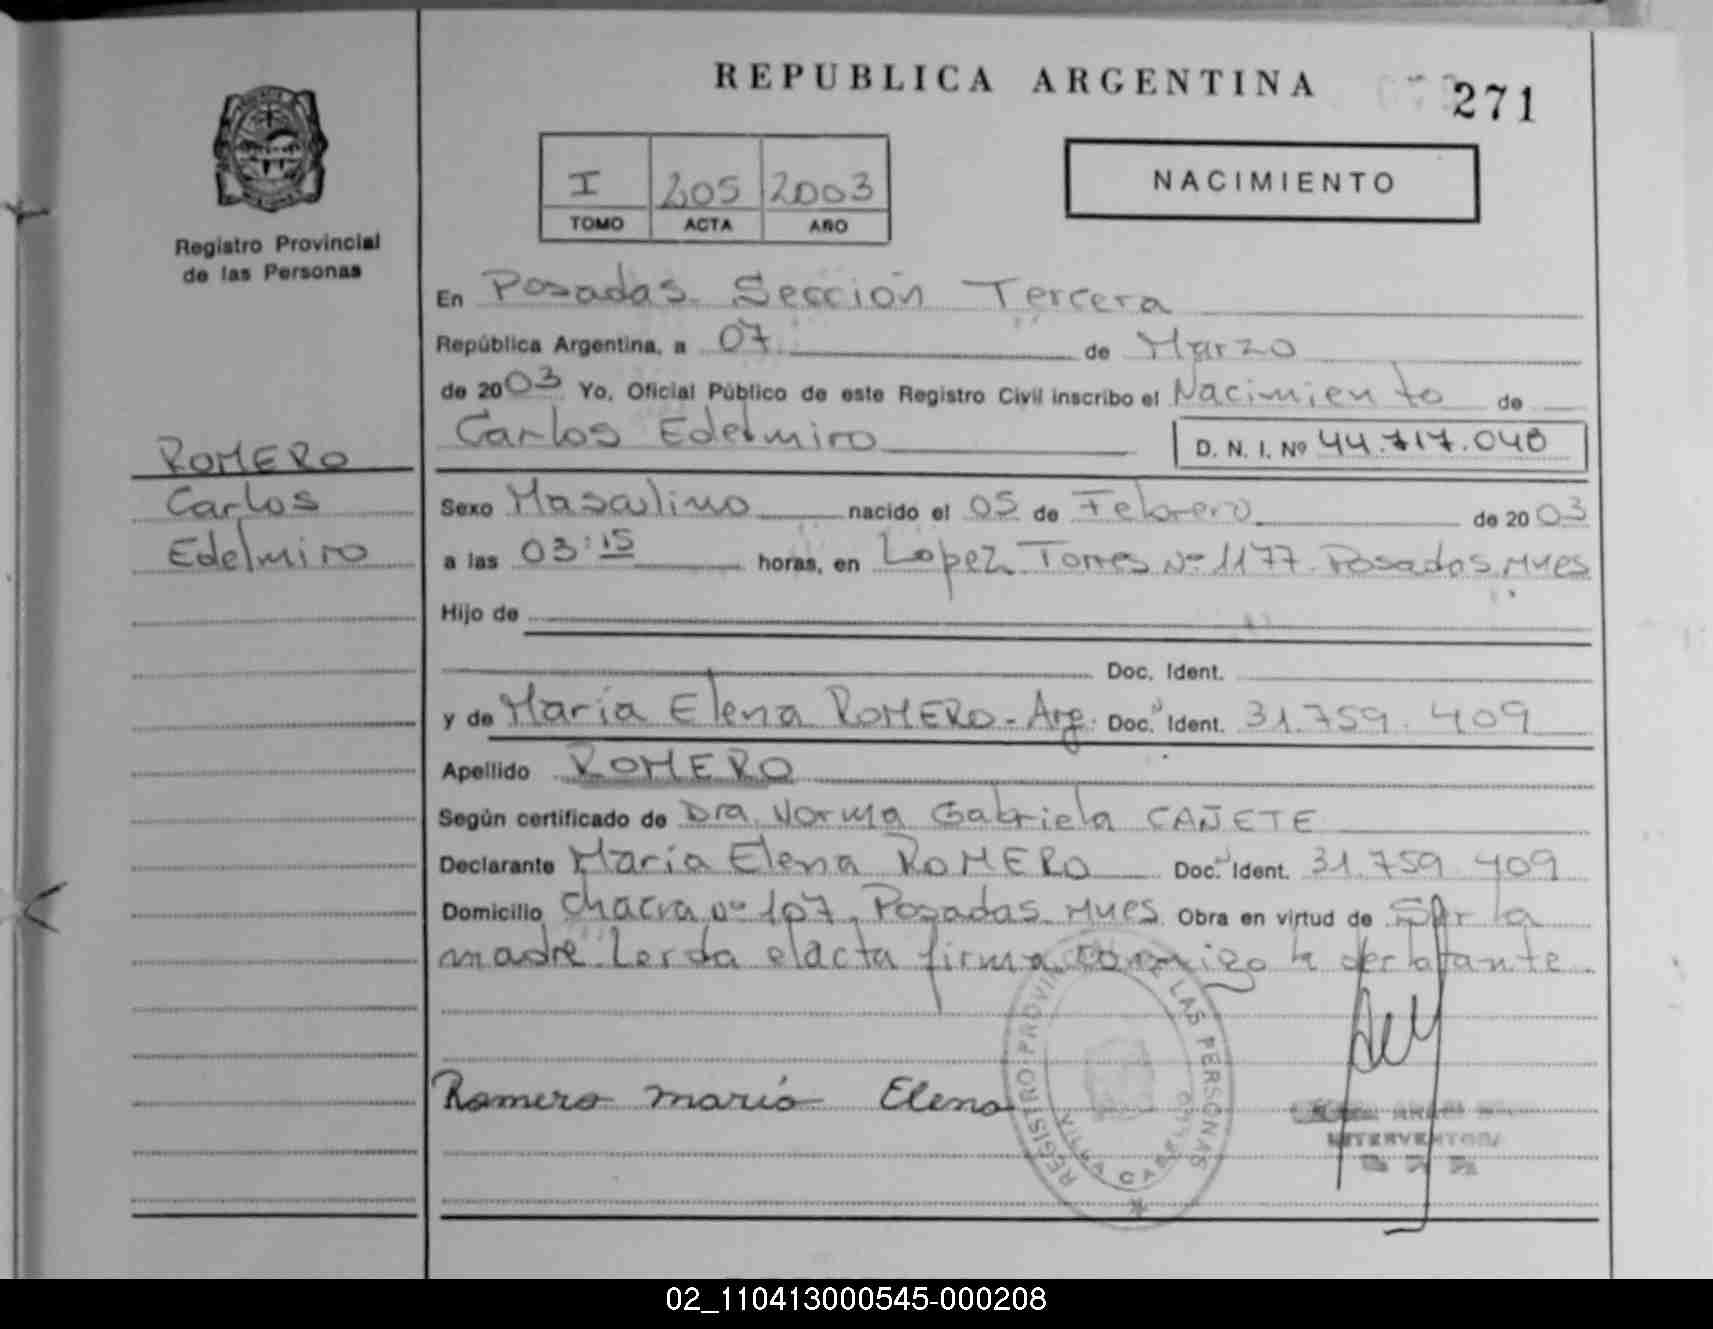 REPUBLICA ARGENTINA
271
I 205 2003
TOMO ACTA AÑO
NACIMIENTO
Registro Provincial
de las Personas
En Posadas Sección Tercera
República Argentina, a 07 de Marzo
de 2003 Yo, Oficial Público de este Registro Civil inscribo el Nacimiento de
Carlos Edelmiro D. N. I. Nº 44.717.040
ROMERO
Carlos
Edelmiro
Sexo Masculino nacido el 05 de Febrero de 2003
a las 03:15 horas, en Lopez Torres Nº 1177 Posadas Mnes
Hijo de
Doc. Ident.
y de María Elena ROMERO - Arg. Doc. Ident. 31.759.409
Apellido ROMERO
Según certificado de Dra. Norma Gabriela CAÑETE
Declarante María Elena ROMERO Doc. Ident. 31.759.409
Domicilio Chacra Nº 107, Posadas Mnes Obra en virtud de Ser la
madre. Leída el acta firma conmigo la declarante.
Romero maria Elena
REGISTRO PROVINCIAL DE LAS PERSONAS
VILLA CABELLO
INTERVENTORA
02_110413000545-000208